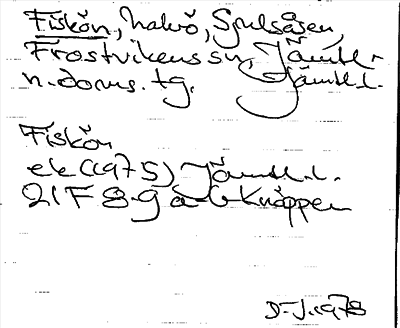 Fiskön, halvö, Sjulsåsen,
Frostvikens sn, Jämtl.
n. doms. tg. Jämtl. l.
Fiskön
ek (1975) Jämtl. l.
21F 8-9 a-b Knäppen
D-J. 1978